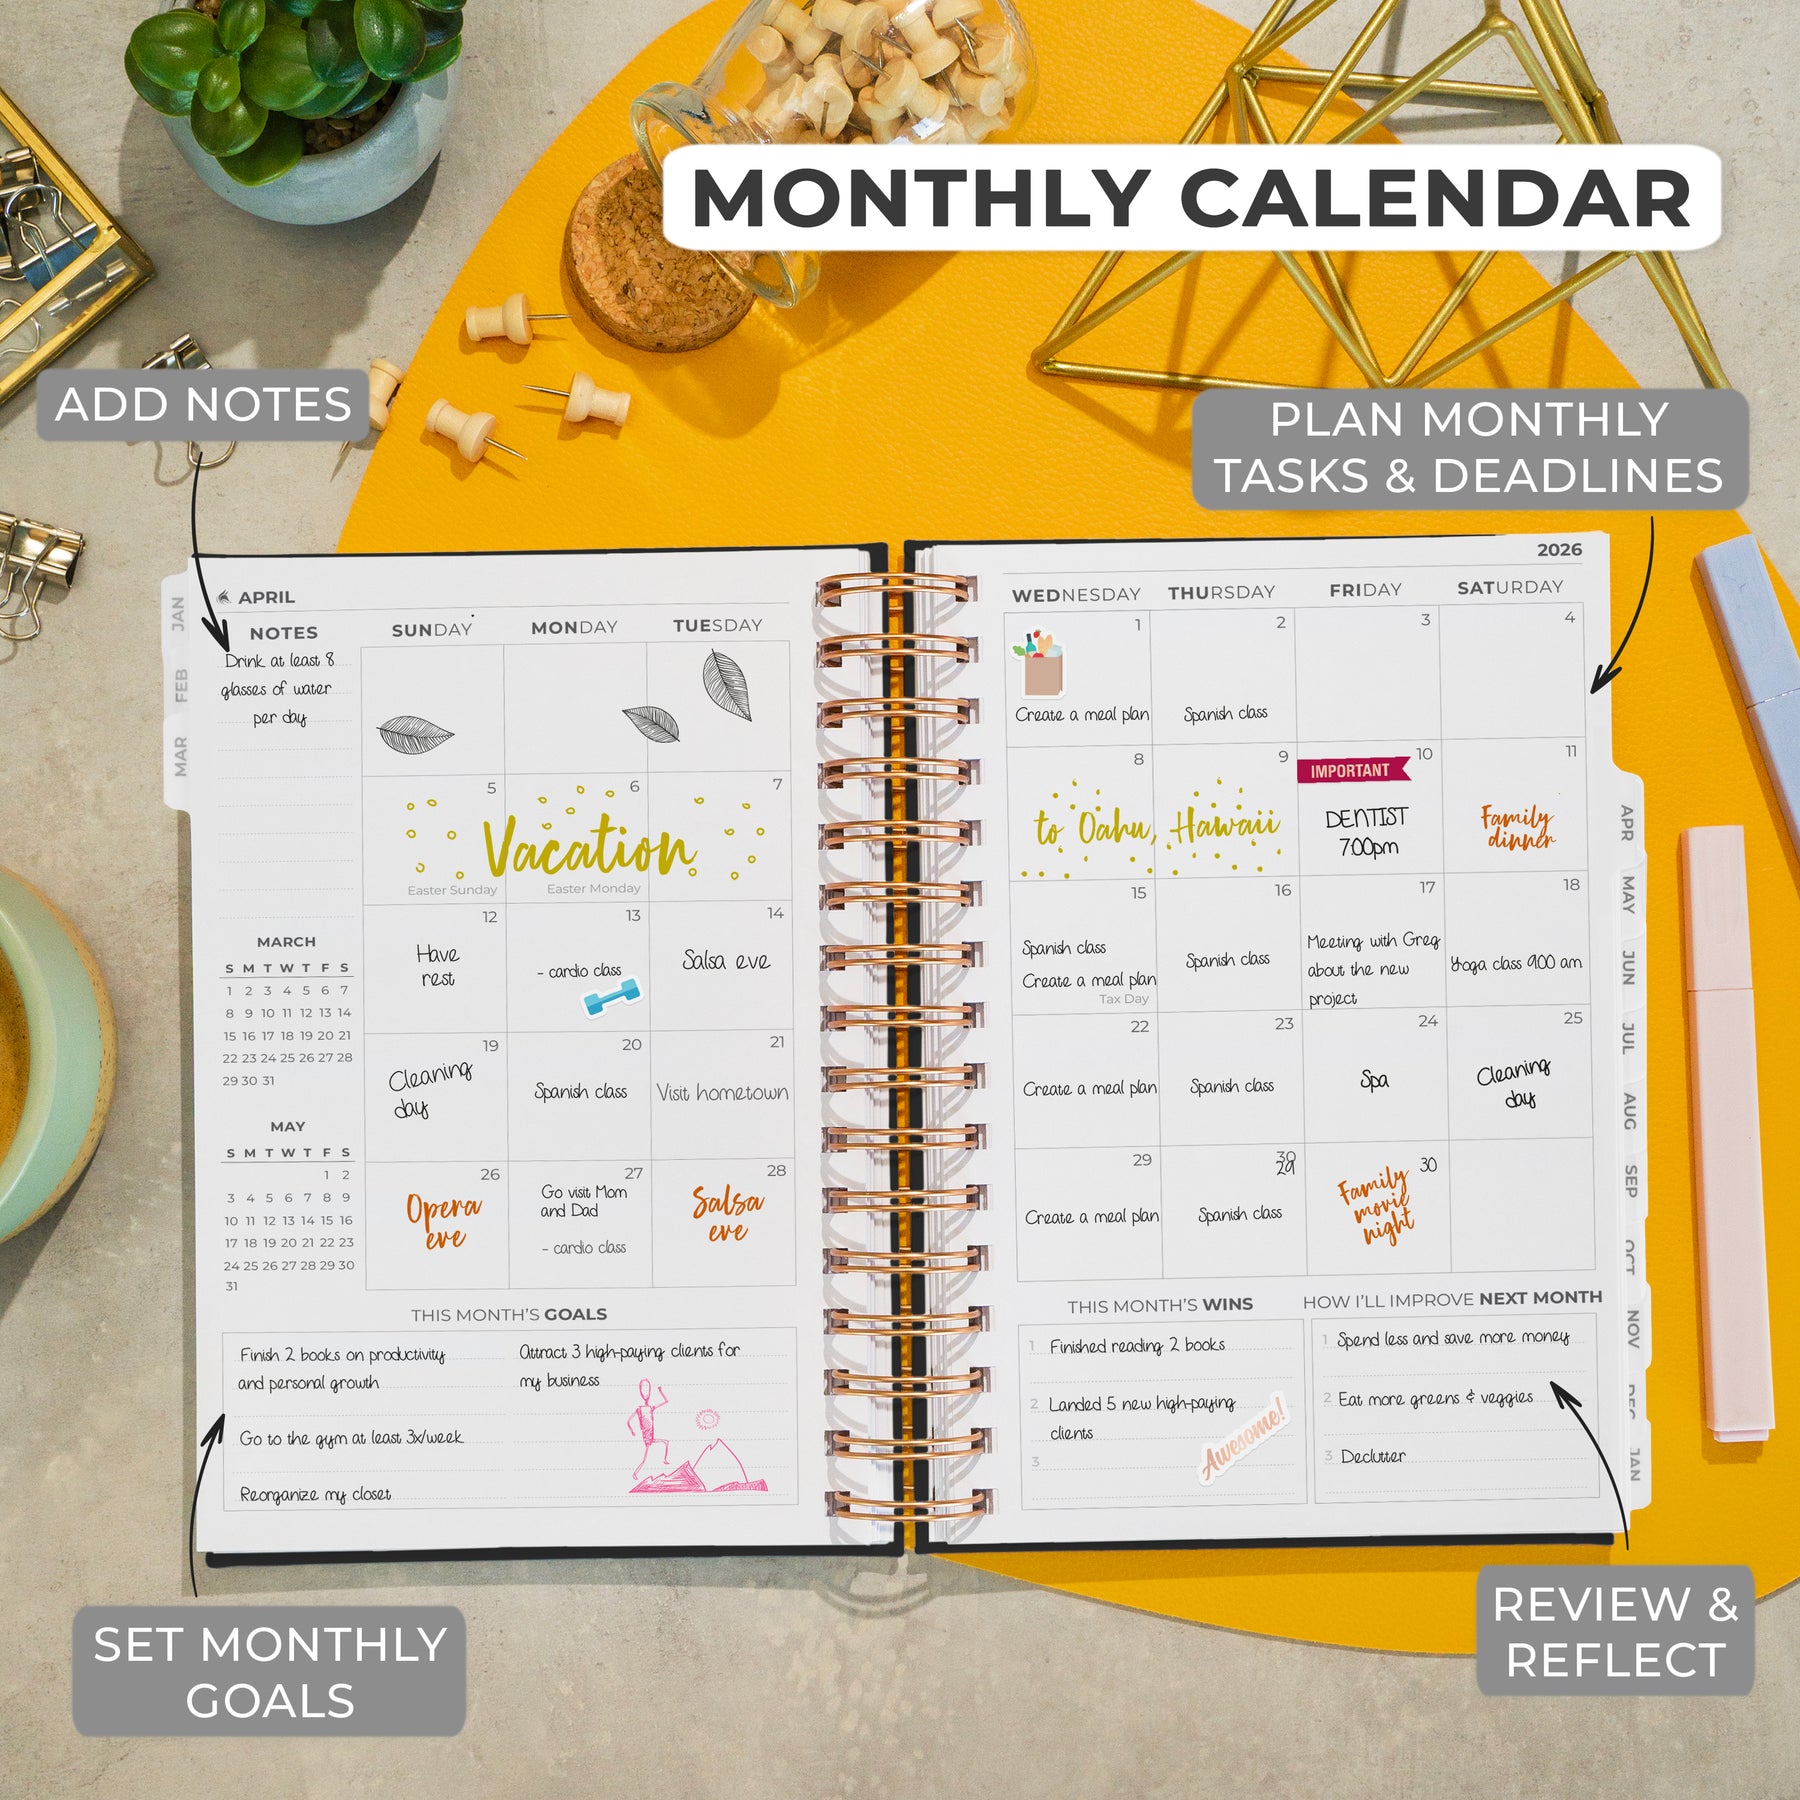 MONTHLY CALENDAR
ADD NOTES
PLAN MONTHLY
TASKS & DEADLINES
JAN
FEB
MAR
APRIL
NOTES
Drink at least 8
glasses of water
per day
SUNDAY MONDAY TUESDAY
5 6 7
Vacation
Easter Sunday Easter Monday
12 13 14
Have
rest
- cardio class
Salsa eve
19 20 21
Cleaning
day
Spanish class
Visit hometown
26 27 28
Opera
eve
Go visit Mom
and Dad
- cardio class
Salsa
eve
MARCH
S M T W T F S
1 2 3 4 5 6 7
8 9 10 11 12 13 14
15 16 17 18 19 20 21
22 23 24 25 26 27 28
29 30 31
MAY
S M T W T F S
1 2
3 4 5 6 7 8 9
10 11 12 13 14 15 16
17 18 19 20 21 22 23
24 25 26 27 28 29 30
31
THIS MONTH'S GOALS
Finish 2 books on productivity
and personal growth
Go to the gym at least 3x/week
Reorganize my closet
Attract 3 high-paying clients for
my business
2026
WEDNESDAY THURSDAY FRIDAY SATURDAY
1 2 3 4
Create a meal plan
Spanish class
8 9 10 11
to Oahu, Hawaii
IMPORTANT
DENTIST
7:00pm
Family
dinner
15 16 17 18
Spanish class
Create a meal plan
Tax Day
Spanish class
Meeting with Greg
about the new
project
Yoga class 9:00 am
22 23 24 25
Create a meal plan
Spanish class
Spa
Cleaning
day
29 30
29
30
Create a meal plan
Spanish class
Family
movie
night
THIS MONTH'S WINS
1 Finished reading 2 books
2 Landed 5 new high-paying
clients
3
Awesome!
HOW I'LL IMPROVE NEXT MONTH
1 Spend less and save more money
2 Eat more greens & veggies
3 Declutter
APR
MAY
JUN
JUL
AUG
SEP
OCT
NOV
DEC
JAN
SET MONTHLY
GOALS
REVIEW &
REFLECT